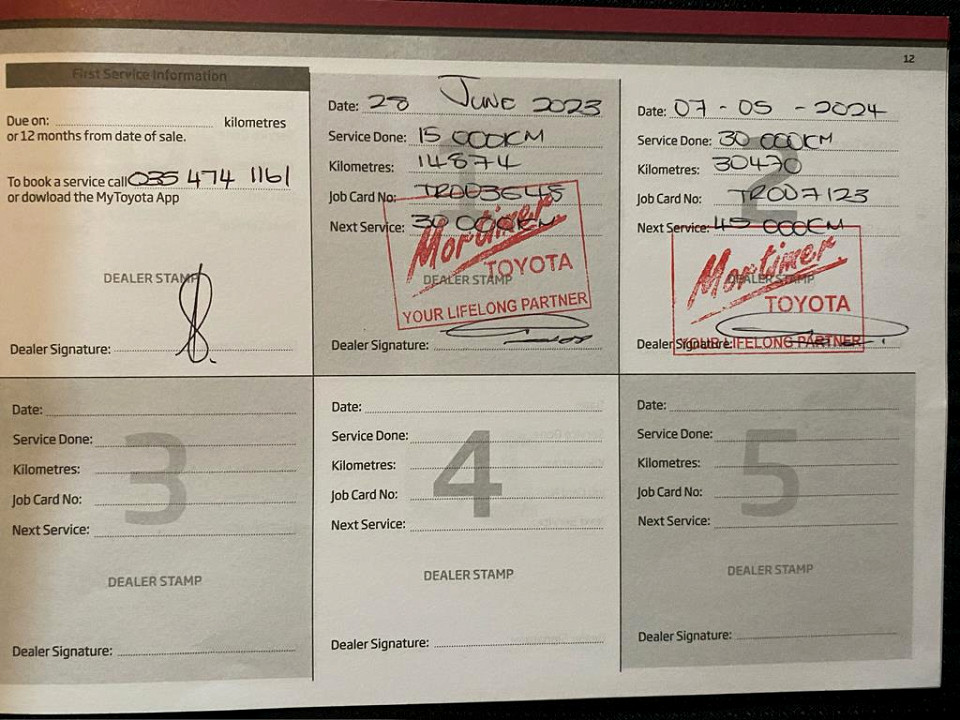 12
First Service Information
Due on: kilometres
or 12 months from date of sale.
To book a service call 035 474 1161
or dowload the MyToyota App
DEALER STAMP
Dealer Signature:
1
Date: 28 June 2023
Service Done: 15 000KM
Kilometres: 14874
Job Card No: TR003645
Next Service: 30 000KM
Mortimer
TOYOTA
DEALER STAMP
YOUR LIFELONG PARTNER
Dealer Signature:
2
Date: 07-05-2024
Service Done: 30 000KM
Kilometres: 30470
Job Card No: TR007123
Next Service: 45 000KM
Mortimer
DEALER STAMP
TOYOTA
YOUR LIFELONG PARTNER
Dealer Signature:
3
Date:
Service Done:
Kilometres:
Job Card No:
Next Service:
DEALER STAMP
Dealer Signature:
4
Date:
Service Done:
Kilometres:
Job Card No:
Next Service:
DEALER STAMP
Dealer Signature:
5
Date:
Service Done:
Kilometres:
Job Card No:
Next Service:
DEALER STAMP
Dealer Signature: